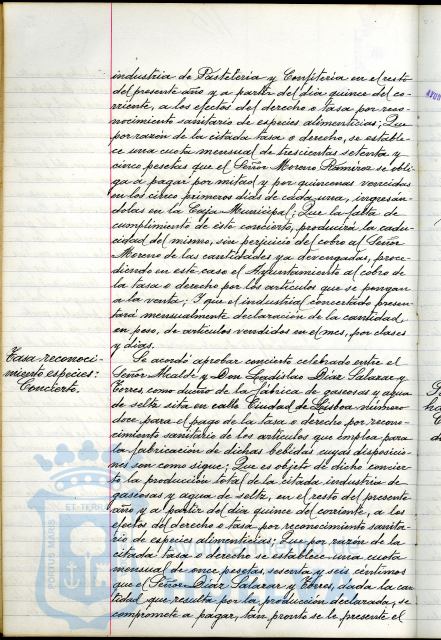 industria de Pastelería y Confitería en el resto
del presente año y a partir del día quince del co-
rriente, a los efectos del derecho o tasa por reco-
nocimiento sanitario de especies alimenticias; Que
por razón de la citada tasa o derecho, se estable-
ce una cuota mensual de trescientas setenta y
cinco pesetas que el Señor Moreno Ramírez se obli-
ga a pagar por mitad y por quincenas vencidas
en los cinco primeros días de cada una, ingresán-
dolas en la Caja Municipal; Que la falta de
cumplimiento de este concierto, producirá la cadu-
cidad del mismo, sin perjuicio del cobro al Señor
Moreno de las cantidades ya devengadas, proce-
diendo en este caso el Ayuntamiento al cobro de
la tasa o derecho por los artículos que se pongan
a la venta; Y que el industrial concertado presen-
tará mensualmente declaración de la cantidad
en peso, de artículos vendidos en el mes, por clases
y días.
Tasa reconoci-
miento especies:
Concierto.
Se acordó aprobar concierto celebrado entre el
Señor Alcalde y Don Ladislao Díaz Salazar y
Torres como dueño de la fábrica de gaseosas y agua
de seltz sita en calle Ciudad de Lisboa número
doce para el pago de la tasa o derecho por recono-
cimiento sanitario de los artículos que emplea para
la fabricación de dichas bebidas cuyas disposicio-
nes son como sigue; Que es objeto de dicho concier-
to la producción total de la citada industria de
gaseosas y agua de seltz, en el resto del presente
año y a partir del día quince del corriente, a los
efectos del derecho o tasa por reconocimiento sanita-
rio de especies alimenticias; Que por razón de la
citada tasa o derecho se establece una cuota
mensual de once pesetas, sesenta y seis céntimos
que el Señor Díaz Salazar y Torres, dada la can-
tidad que resulta por la producción declarada, se
compromete a pagar, tan pronto se le presente el
PORTUS MARIS
ET TERRE